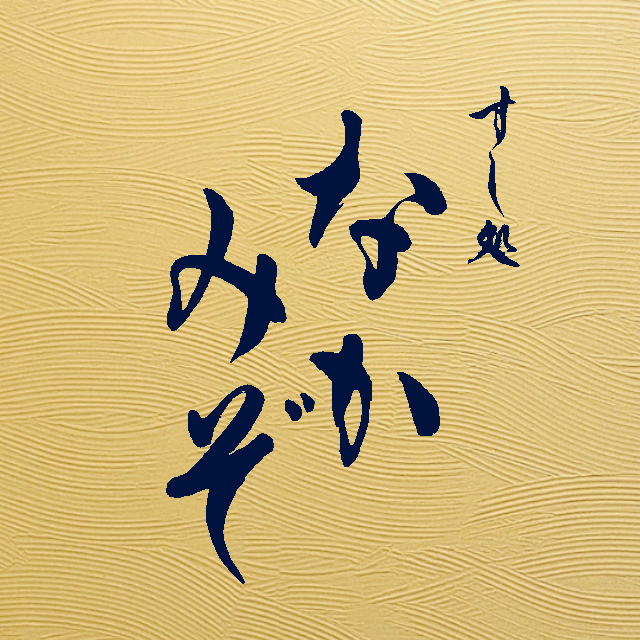 すし処
なか
みぞ